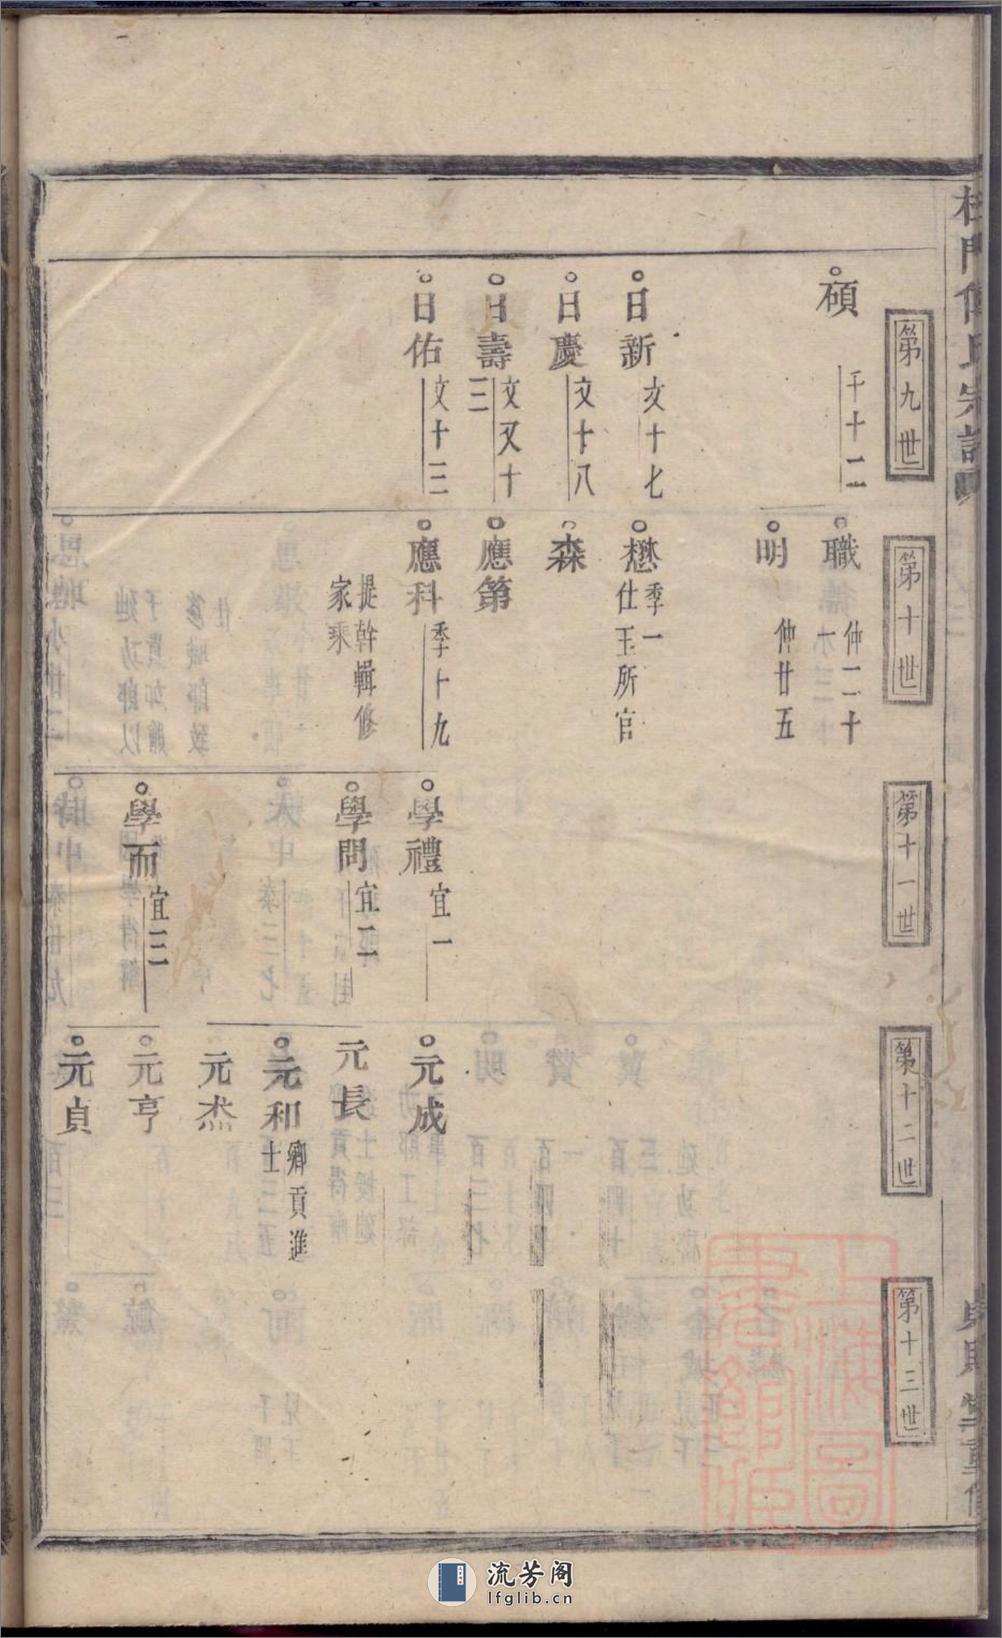 第九世
碩 千十二
日新 文十七
日慶 文十八
日壽 文又十三
日佑 文十三
第十世
職 仲二十一
明 仲廿五
懋 季一
仕玉所官
森
應第
應科 季十九
提幹輯修
家乘
第十一世
學禮 宜一
學問 宜二
學而 宜三
第十二世
元成
元長
元和 鄉貢進士
元杰
元亨
元貞
第十三世
上海圖書館藏
流芳阁
lfglib.cn